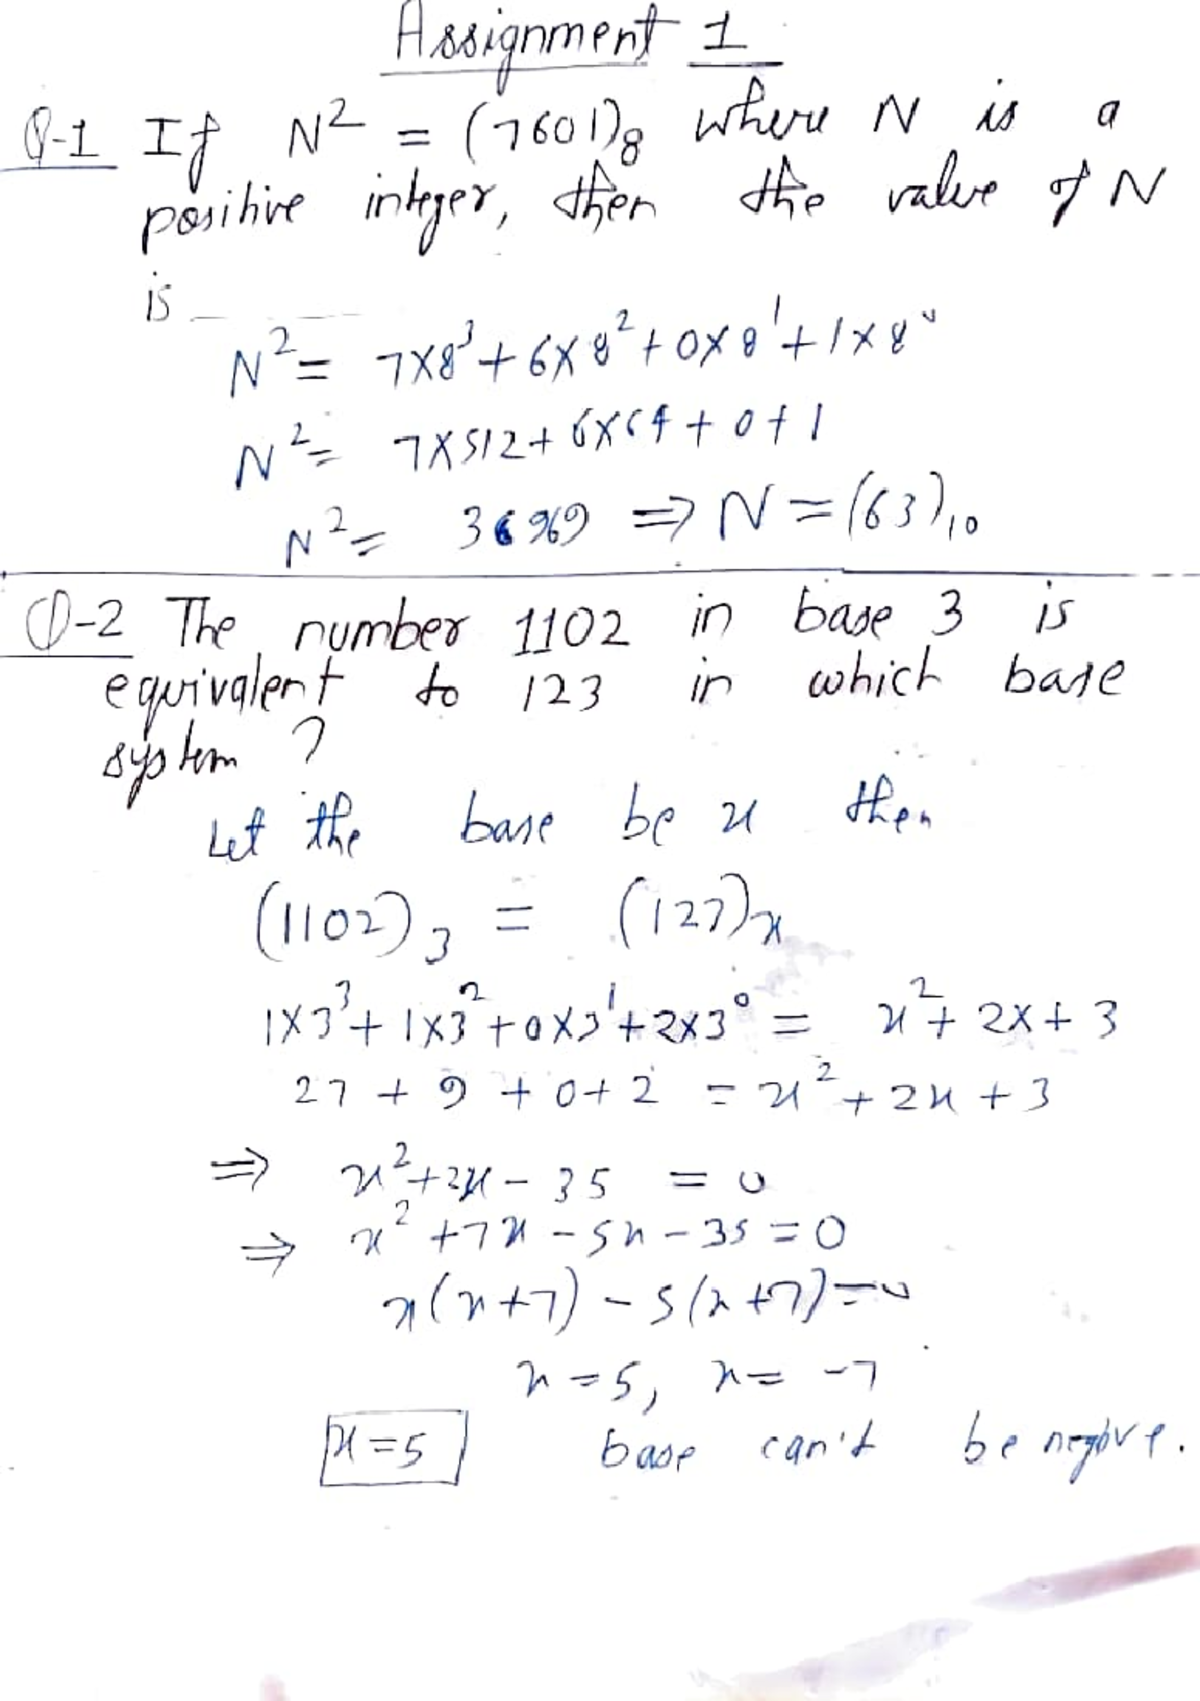 Assignment 1
Q-1 If N² = (7601)₈ where N is a
positive integer, then the value of N
is
N² = 7X8³ + 6X8² + 0X8¹ + 1X8⁰
N² = 7X512 + 6X64 + 0 + 1
N² = 3969 ⇒ N = (63)₁₀
Q-2 The number 1102 in base 3 is
equivalent to 123 in which base
system ?
Let the base be x then
(1102)₃ = (123)ₓ
1X3³ + 1X3² + 0X3¹ + 2X3⁰ = x² + 2x + 3
27 + 9 + 0 + 2 = x² + 2x + 3
⇒ x² + 2x - 35 = 0
⇒ x² + 7x - 5x - 35 = 0
x(x+7) - 5(x+7) = 0
x = 5, x = -7
x = 5 base can't be negative.